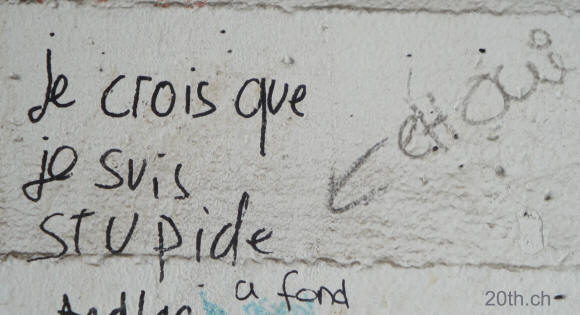 je crois que
je suis
stupide
eh oui
a fond
20th.ch